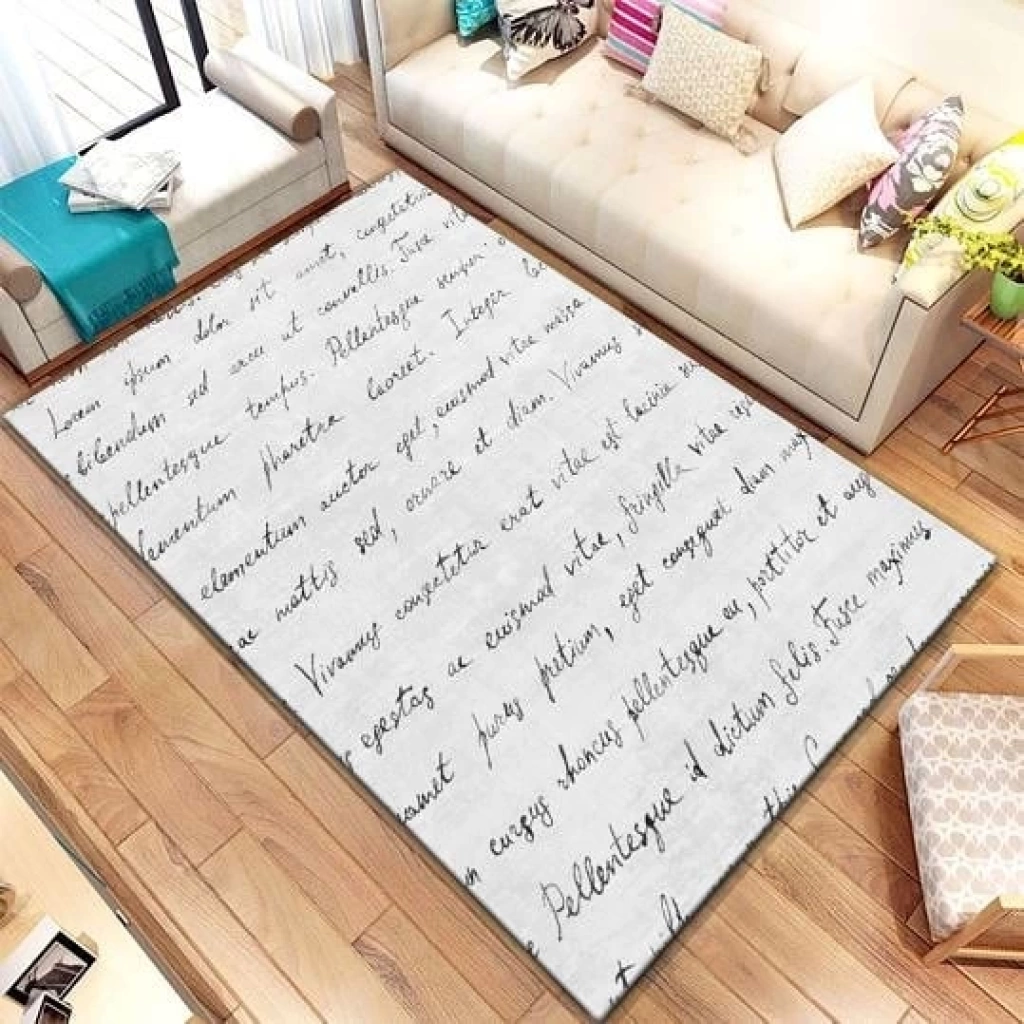 Lorem ipsum dolor sit amet, consectetur
bibendum sed arcu ut convallis. Fusce vitae
pellentesque tempus. Pellentesque semper
elementum pharetra laoreet. Integer lac
elementum auctor eget, euismod vitae massa
ac mattis sed, ornare et diam. Vivamus
Vivamus consectetur erat vitae est lacinia
egestas ac euismod vitae, fringilla vitae
amet purus pretium, eget consequat diam
in cursus rhoncus pellentesque eu, porttitor et aug
Pellentesque id dictum felis. Fusce maximus